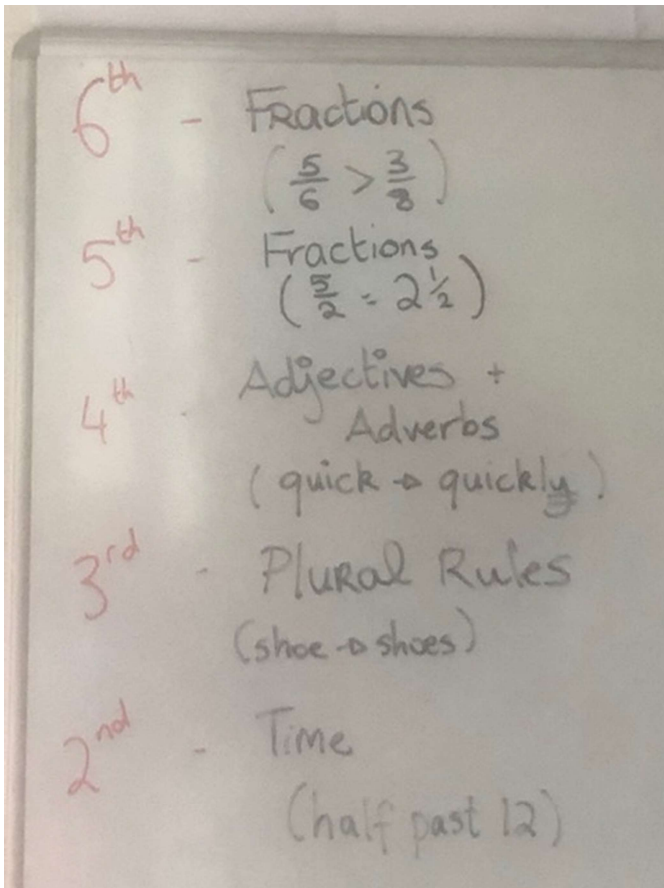 6th - Fractions
(5/6 > 3/8)
5th - Fractions
(5/2 = 2 1/2)
4th - Adjectives +
Adverbs
(quick → quickly)
3rd - Plural Rules
(shoe → shoes)
2nd - Time
(half past 12)